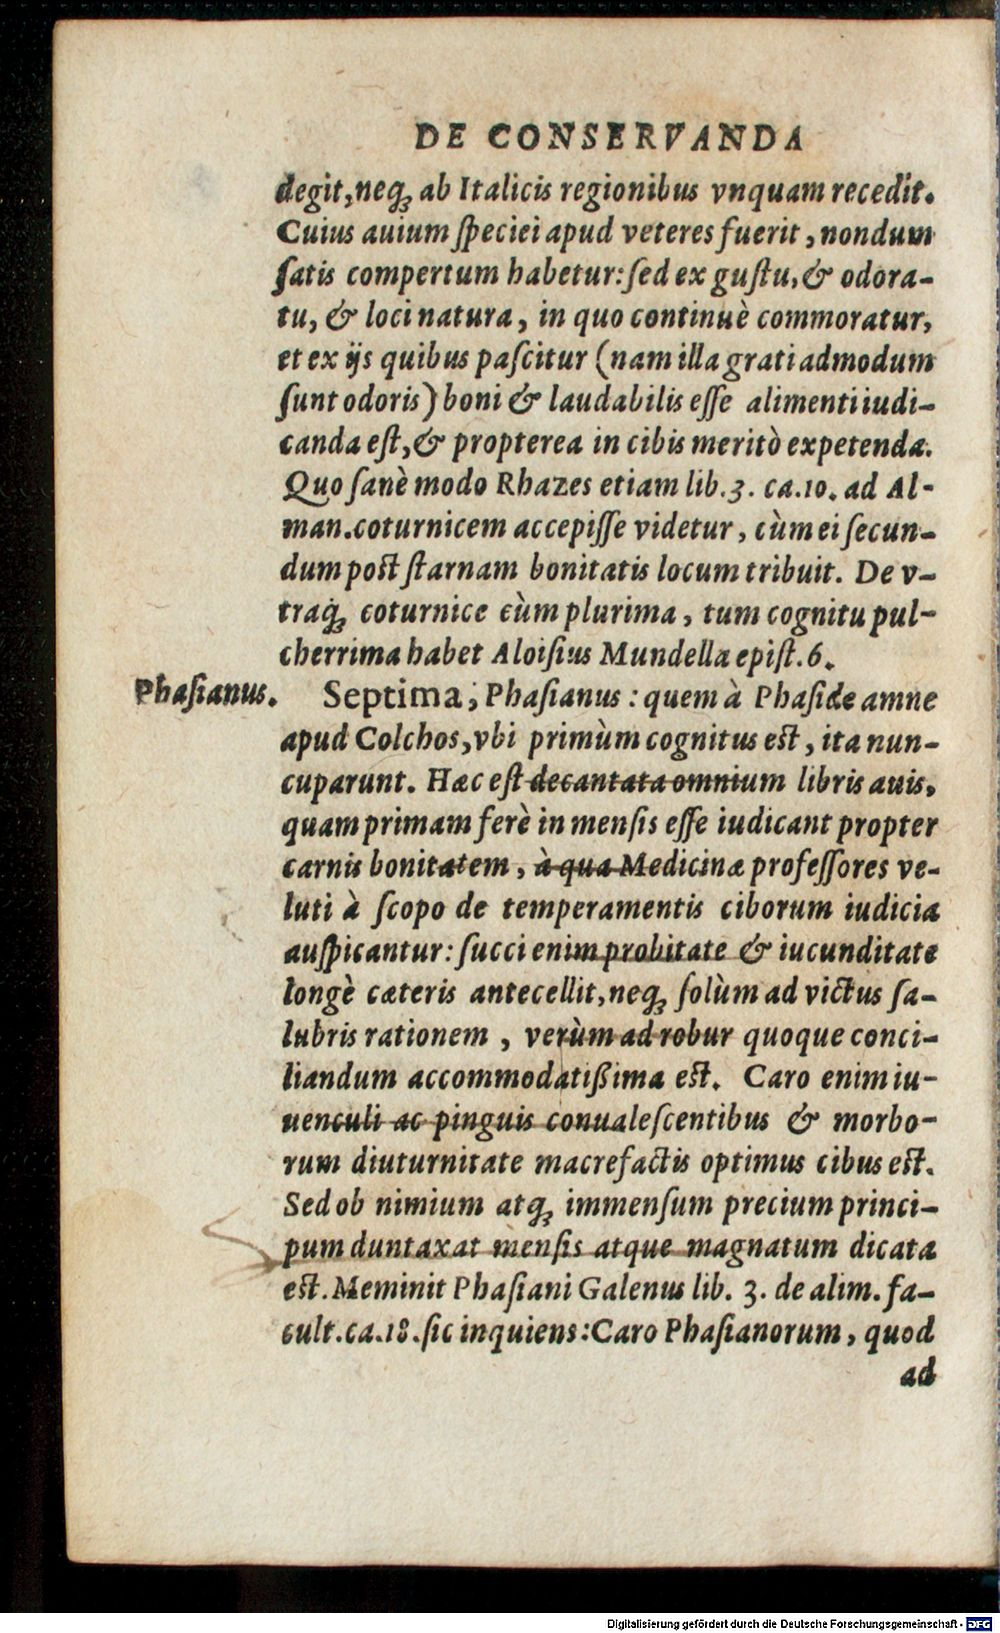 DE CONSERVANDA
degit, neqȝ ab Italicis regionibus vnquam recedit.
Cuius auium ſpeciei apud veteres fuerit, nondum
ſatis compertum habetur: ſed ex guſtu, & odora-
tu, & loci natura, in quo continuè commoratur,
et ex ijs quibus paſcitur (nam illa grati admodum
ſunt odoris) boni & laudabilis eſſe alimenti iudi-
canda eſt, & propterea in cibis meritò expetenda.
Quo ſanè modo Rhazes etiam lib. 3. ca. 10. ad Al-
man. coturnicem accepiſſe videtur, cùm ei ſecun-
dum poſt ſtarnam bonitatis locum tribuit. De v-
traqȝ coturnice cùm plurima, tum cognitu pul-
cherrima habet Aloiſius Mundella epiſt. 6.
Phaſianus. Septima, Phaſianus: quem à Phaſide amne
apud Colchos, vbi primùm cognitus eſt, ita nun-
cuparunt. Hæc eſt decantata omnium libris auis,
quam primam ferè in menſis eſſe iudicant propter
carnis bonitatem, à qua Medicinæ profeſſores ve-
luti à ſcopo de temperamentis ciborum iudicia
auſpicantur: ſucci enim probitate & iucunditate
longè cæteris antecellit, neqȝ ſolùm ad victus ſa-
lubris rationem, verùm ad robur quoque conci-
liandum accommodatißima eſt. Caro enim iu-
uenculi ac pinguis conualeſcentibus & morbo-
rum diuturnitate macrefactis optimus cibus eſt.
Sed ob nimium atqȝ immenſum precium princi-
pum duntaxat menſis atque magnatum dicata
eſt. Meminit Phaſiani Galenus lib. 3. de alim. fa-
cult. ca. 18. ſic inquiens: Caro Phaſianorum, quod
ad
Digitalisierung gefördert durch die Deutsche Forschungsgemeinschaft - DFG